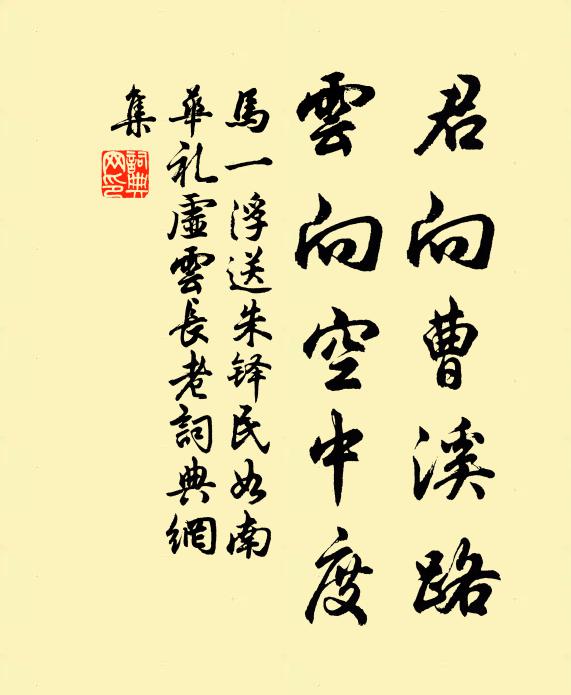 君向曹溪路
雲向空中度
馬一浮送朱铎民如南
華礼虛雲長老詞典網
集
詞典網印